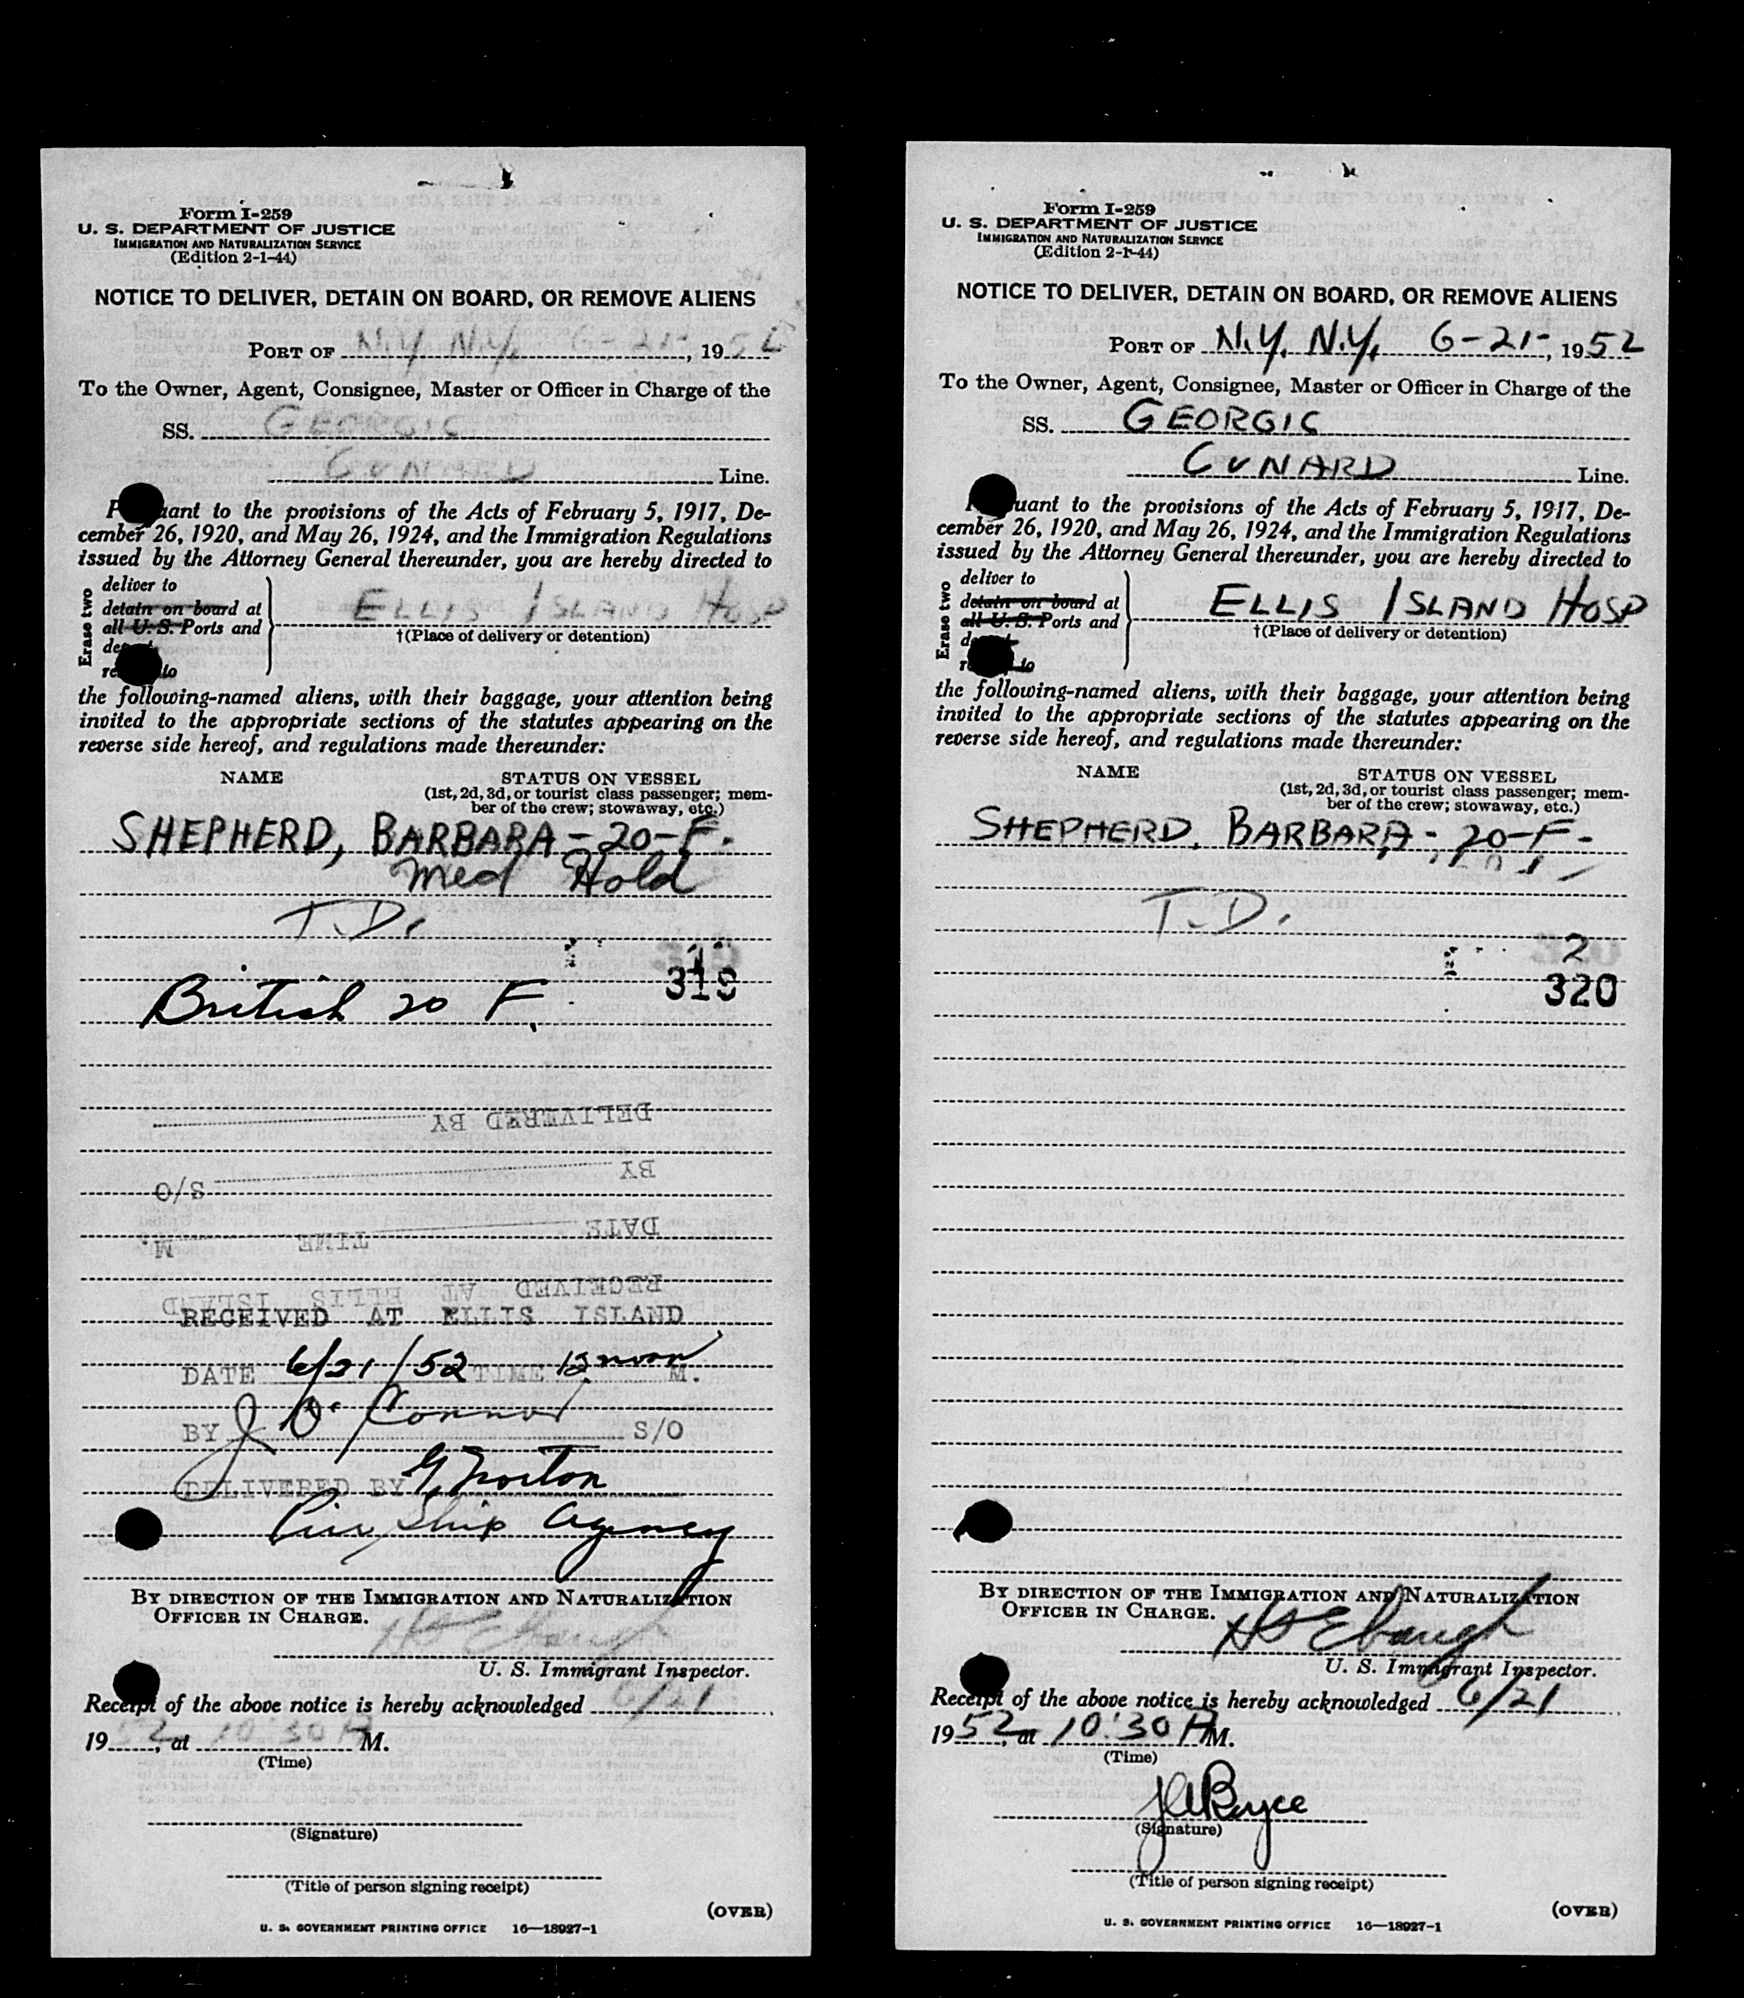 Form I-259
U. S. DEPARTMENT OF JUSTICE
IMMIGRATION AND NATURALIZATION SERVICE
(Edition 2-1-44)
NOTICE TO DELIVER, DETAIN ON BOARD, OR REMOVE ALIENS
PORT OF N.Y. N.Y. 6-21-, 1952
To the Owner, Agent, Consignee, Master or Officer in Charge of the
SS. GEORGIC
CUNARD Line.
Pursuant to the provisions of the Acts of February 5, 1917, De-
cember 26, 1920, and May 26, 1924, and the Immigration Regulations
issued by the Attorney General thereunder, you are hereby directed to
Erase two
deliver to
detain on board at
all U. S. Ports and
to
ELLIS ISLAND HOSP
†(Place of delivery or detention)
the following-named aliens, with their baggage, your attention being
invited to the appropriate sections of the statutes appearing on the
reverse side hereof, and regulations made thereunder:
NAME STATUS ON VESSEL
(1st, 2d, 3d, or tourist class passenger; mem-
ber of the crew; stowaway, etc.)
SHEPHERD, BARBARA - 20 - F.
Med Hold
T.D.
319
British 20 F.
DELIVERED BY
BY S/O
DATE TIME M.
RECEIVED AT ELLIS ISLAND
RECEIVED AT ELLIS ISLAND
DATE 6/21/52 TIME 12 noon M.
BY J O'Connor S/O
DELIVERED BY G. Norton
Ship Agency
BY DIRECTION OF THE IMMIGRATION AND NATURALIZATION
OFFICER IN CHARGE.
H S Ebaugh
U. S. Immigrant Inspector.
Receipt of the above notice is hereby acknowledged 6/21
1952, at 10:30 A M.
(Time)
(Signature)
(Title of person signing receipt)
(OVER)
U. S. GOVERNMENT PRINTING OFFICE 16—18927-1
Form I-259
U. S. DEPARTMENT OF JUSTICE
IMMIGRATION AND NATURALIZATION SERVICE
(Edition 2-1-44)
NOTICE TO DELIVER, DETAIN ON BOARD, OR REMOVE ALIENS
PORT OF N.Y. N.Y. 6-21-, 1952
To the Owner, Agent, Consignee, Master or Officer in Charge of the
SS. GEORGIC
CUNARD Line.
Pursuant to the provisions of the Acts of February 5, 1917, De-
cember 26, 1920, and May 26, 1924, and the Immigration Regulations
issued by the Attorney General thereunder, you are hereby directed to
Erase two
deliver to
detain on board at
all U. S. Ports and
to
ELLIS ISLAND HOSP
†(Place of delivery or detention)
the following-named aliens, with their baggage, your attention being
invited to the appropriate sections of the statutes appearing on the
reverse side hereof, and regulations made thereunder:
NAME STATUS ON VESSEL
(1st, 2d, 3d, or tourist class passenger; mem-
ber of the crew; stowaway, etc.)
SHEPHERD, BARBARA - 20 - F -
T.D.
2
320
BY DIRECTION OF THE IMMIGRATION AND NATURALIZATION
OFFICER IN CHARGE.
H S Ebaugh
U. S. Immigrant Inspector.
Receipt of the above notice is hereby acknowledged 6/21
1952, at 10:30 A M.
(Time)
(Signature)
(Title of person signing receipt)
(OVER)
U. S. GOVERNMENT PRINTING OFFICE 16—18927-1